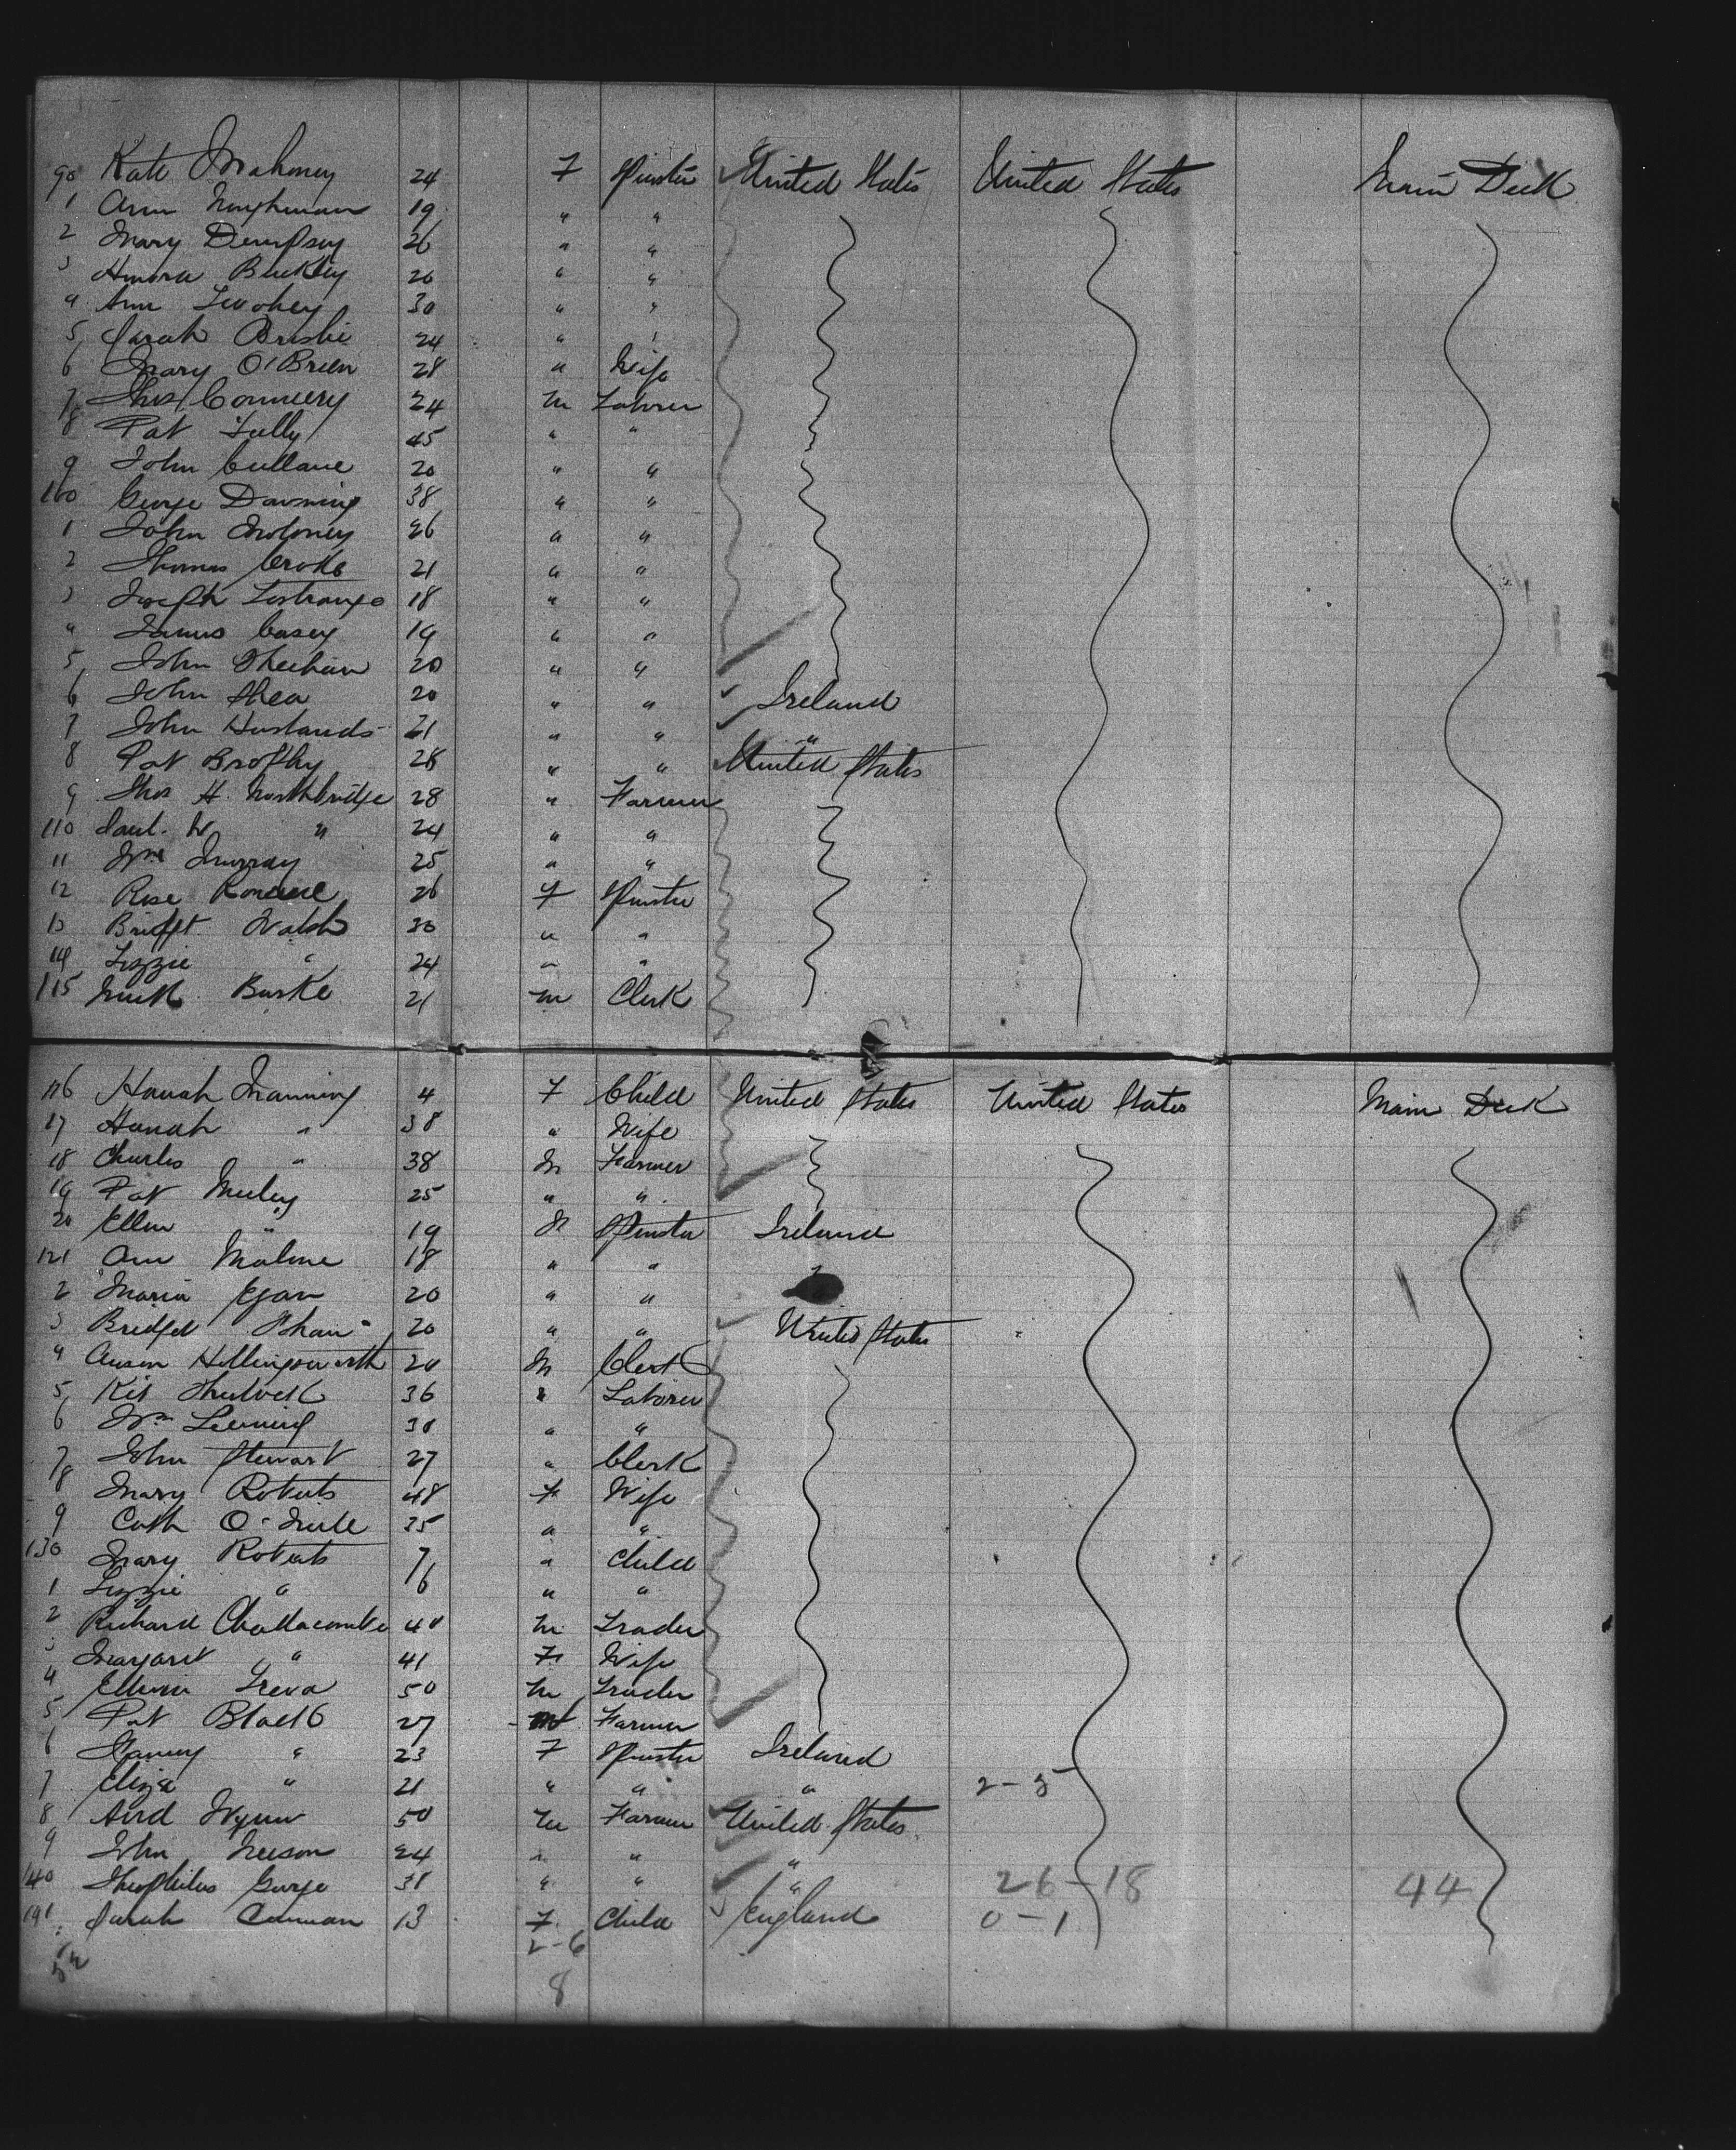 90 Kate Mahoney 24 F Spinster United States United States Main Deck
1 Ann 19 " "
2 Mary Dempsey 26 " "
3 Honora Buckley 20 " "
4 Ann 30 " "
5 Sarah 24 " "
6 Mary O'Brien 28 " Wife
7 Thos Connery 24 M Laborer
8 Pat Tully 45 " "
9 John Cullane 20 " "
100 George Downing 38 " "
1 John Moloney 26 " "
2 Thomas Croke 21 " "
3 Joseph Lestrange 18 " "
4 James Casey 19 " "
5 John Sheehan 20 " "
6 John Shea 20 " " Ireland
7 John Husbands 21 " " "
8 Pat Brophy 28 " " United States
9 Thos H. Northbridge 28 " Farmer
110 Saml. W " 24 " "
11 Wm Murray 25 " "
12 Rose 26 F Spinster
13 Bridget Walsh 30 " "
14 Lizzie " 24 " "
115 Burke 21 M Clerk
116 Hanah Manning 4 F Child United States United States Main Deck
17 Hanah " 38 " Wife
18 Charles " 38 M Farmer
19 Pat 25 " "
20 Ellen " 19 Spinster Ireland
121 Ann Malone 18 " "
2 Maria Egan 20 " "
3 Bridget 20 " " United States
4 Hollingsworth 20 M Clerk
5 Kit 36 " Laborer
6 Wm 30 " "
7 John Stewart 27 " Clerk
8 Mary Roberts 48 F Wife
9 Cath 35 " "
130 Mary Roberts 7 " Child
1 Lizzie " 6 " "
2 Richard Chollacombe 40 M Trader
3 Margaret " 41 F Wife
4 50 M Trader
5 Pat 27 M Farmer
6 " 23 F Spinster Ireland
7 Eliza " 21 " " " 2-5
8 Wynn 50 M Farmer United States
9 John 24 " " "
140 Theophilus George 31 " " " 26-18 44
141 Sarah 13 F Child England 0-1
2-6
8